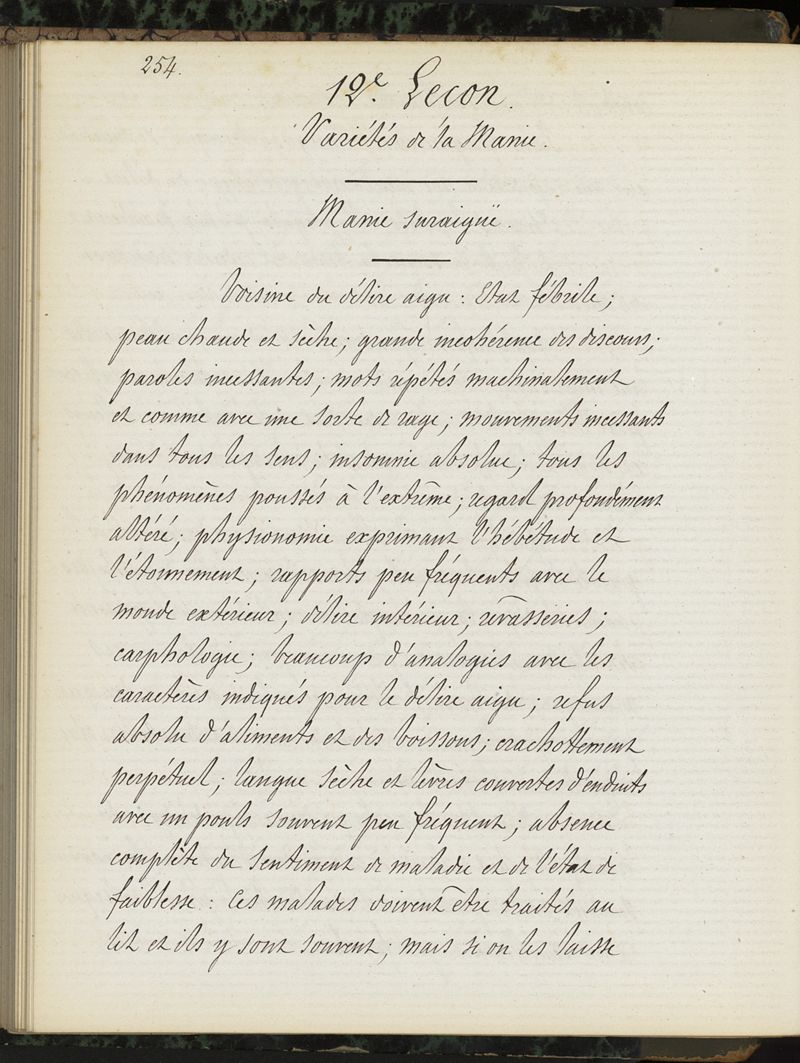 254.
12e. Lecon.
Variétés de la Manie.
Manie suraigüe.
Voisine du délire aigu : Etat fébrile ;
peau chaude et sèche ; grande incohérence des discours ;
paroles incessantes ; mots répétés machinalement
et comme avec une sorte de rage ; mouvements incessants
dans tous les sens ; insomnie absolue ; tous les
phénomènes poussés à l'extrême ; regard profondément
altéré ; physionomie exprimant l'hébétude et
l'étonnement ; rapports peu fréquents avec le
monde extérieur ; délire intérieur ; rêvasseries ;
carphologie ; beaucoup d'analogies avec les
caractères indiqués pour le délire aigu ; refus
absolu d'aliments et des boissons ; crachottement
perpétuel ; langue sèche et lèvres couvertes d'enduits
avec un pouls souvent peu fréquent ; absence
complète du sentiment de maladie et de l'état de
faiblesse : Ces malades doivent être traités au
lit et ils y sont souvent ; mais si on les laisse